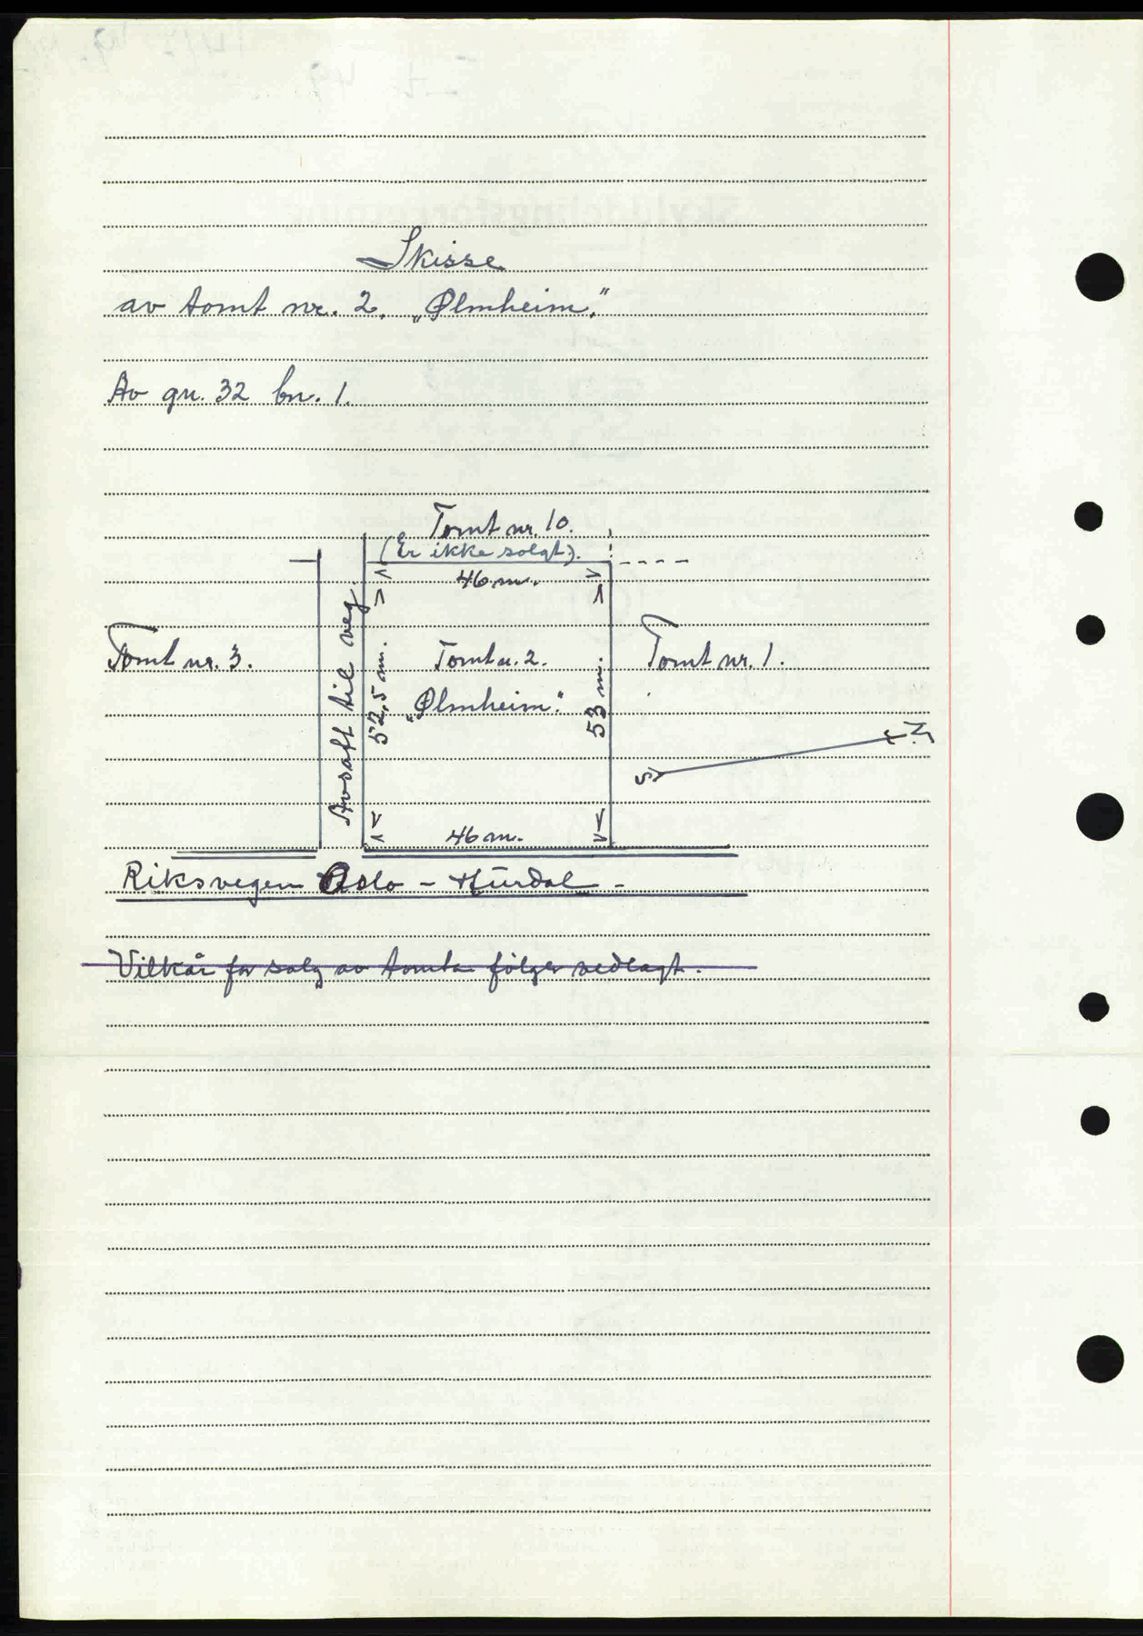 Skisse
av tomt nr. 2. „Ølmheim“.
Av gn. 32 bn. 1.
Tomt nr. 10.
(Er ikke solgt).
46 m.
Tomt nr. 3.
Avsatt til veg.
52,5 m.
Tomt n. 2.
„Ølmheim“.
53 m.
Tomt nr. 1.
N.
S
46 m.
Riksvegen Oslo – Hurdal –
Vilkår for salg av tomta følger vedlagt.